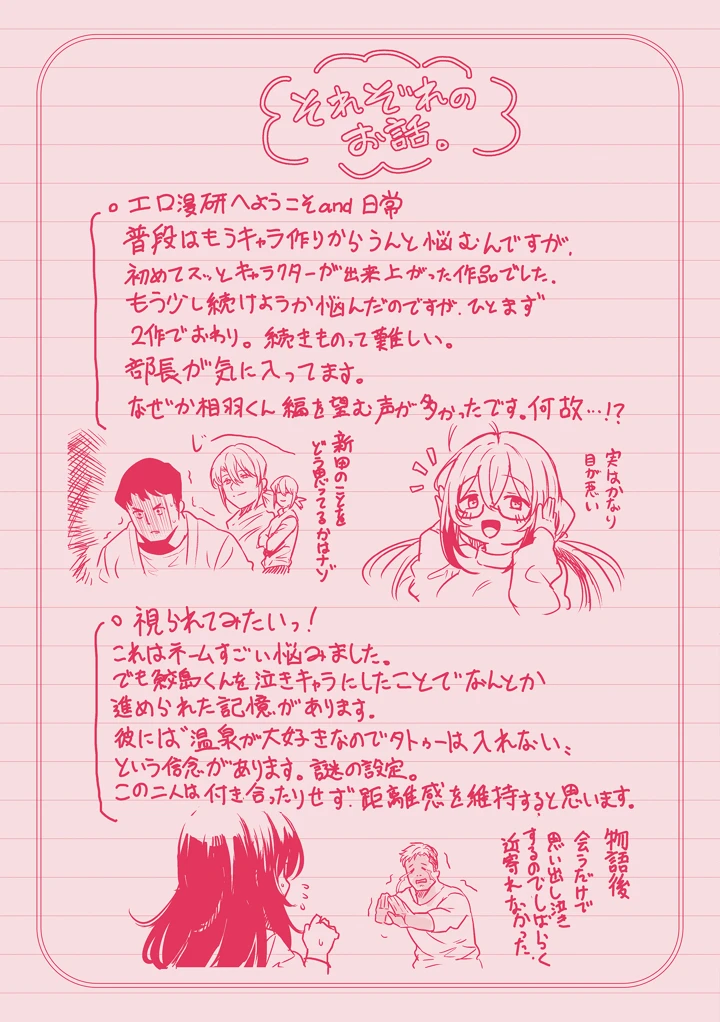 それぞれの
お話。
○ エロ漫研へようこそand 日常
普段はもうキャラ作りからうんと悩むんですが、
初めてスッとキャラクターが出来上がった作品でした。
もう少し続けようか悩んだのですが、ひとまず
2作でおわり。続きものって難しい。
部長が気に入ってます。
なぜか相羽くん編を望む声が多かったです。何故…!?
じーっ
新田のことを
どう思ってるかはナゾ
実はかなり
目が悪い
○ 視られてみたいっ!
これはネームすごい悩みました。
でも鮫島くんを泣きキャラにしたことでなんとか
進められた記憶があります。
彼には〝温泉が大好きなのでタトゥーは入れない〟
という信念があります。謎の設定。
この二人は付き合ったりせず、距離感を維持すると思います。
物語後
会うだけで
思い出し泣き
するのでしばらく
近寄れなかった。